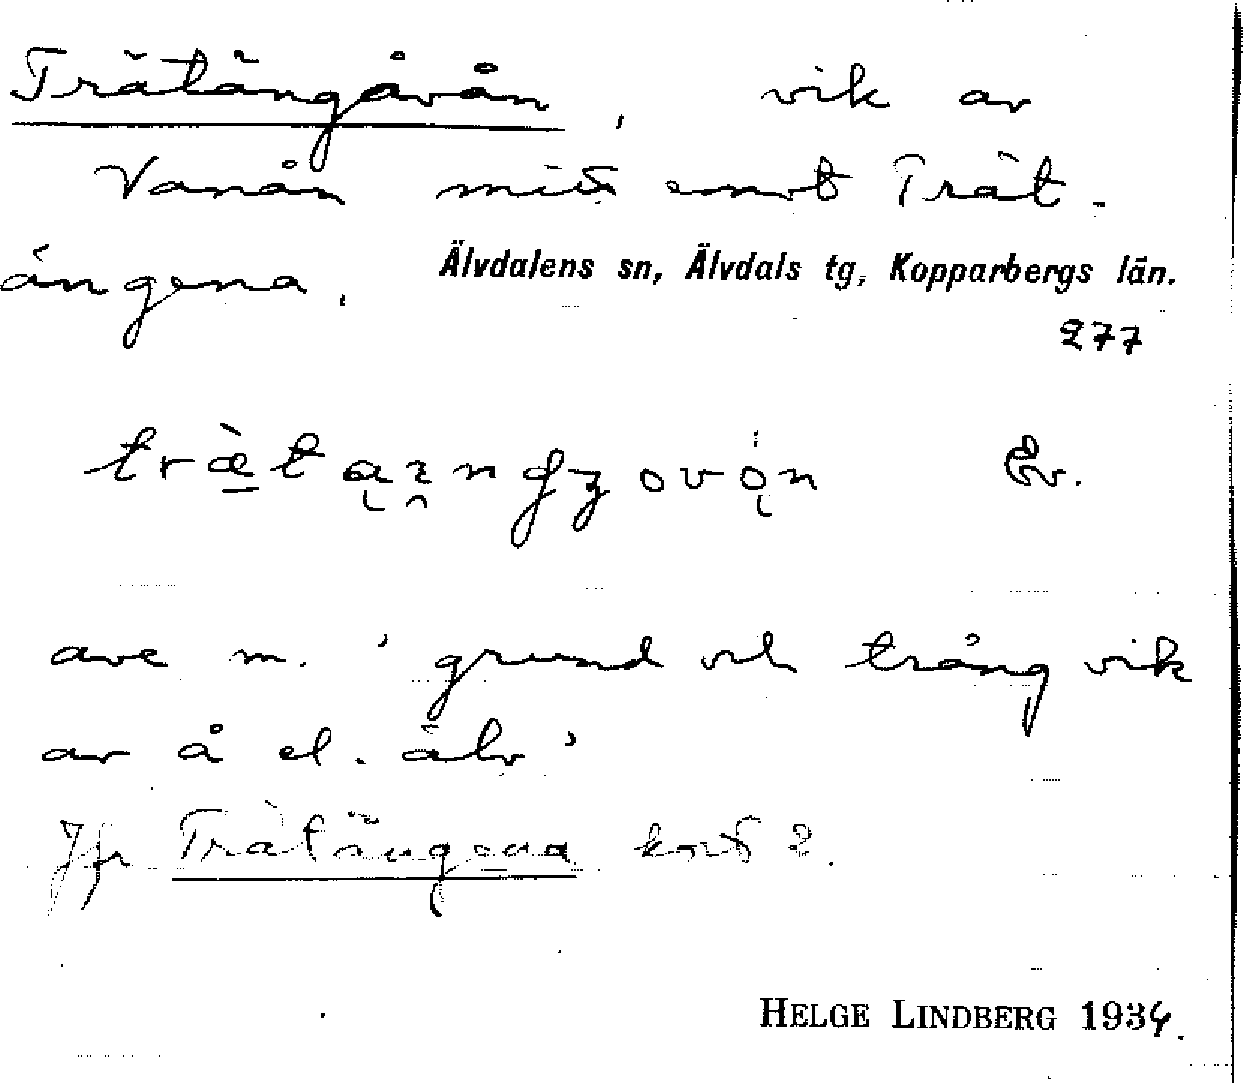 Trätängåvån, vik av
Vanån mitt emot Trät-
ängena.
Älvdalens sn, Älvdals tg, Kopparbergs län.
277
Ev.
ave m. 'grund och trång vik
av å el. älv'
Jfr Trätängena kort 2.
HELGE LINDBERG 1934.